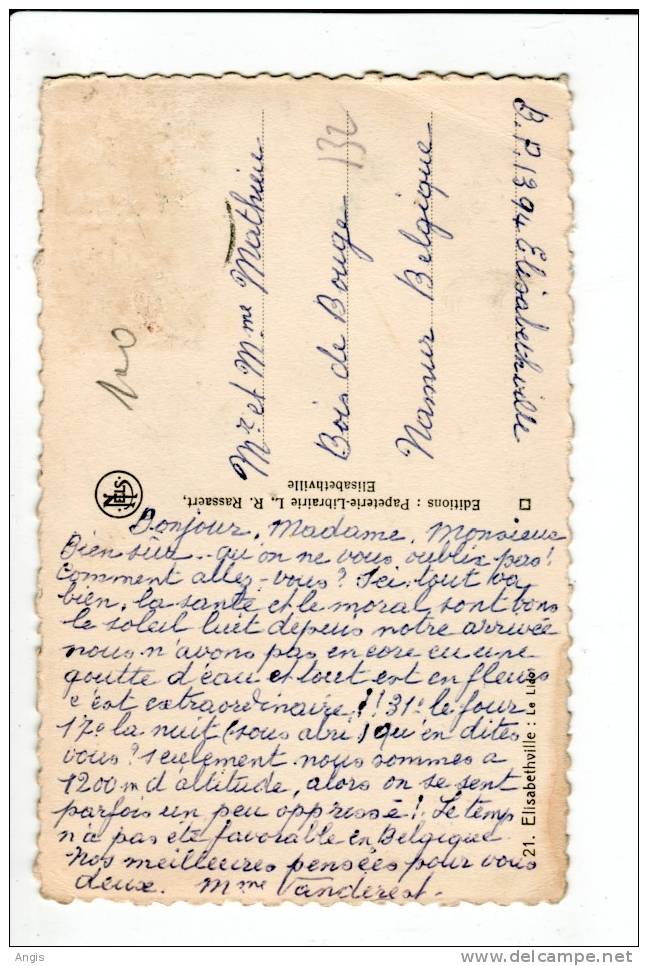 Bonjour, Madame, Monsieur
Bien sûr.. qu'on ne vous oublie pas!
Comment allez-vous? Ici tout va
bien, la santé et le moral sont bons
le soleil luit depuis notre arrivée
nous n'avons pas encore eu une
goutte d'eau et tout est en fleurs
c'est extraordinaire!!! 31° le jour
17° la nuit (sous abri) qu'en dites
vous? seulement nous sommes a
1200m d'altitude, alors on se sent
parfois un peu oppressé! Le temps
n'a pas été favorable en Belgique.
Nos meilleures pensées pour vous
deux. Mme Vanderest.
21. Elisabethville : Le Lido
Editions : Papeterie-Librairie L. R. Rassaert,
Elisabethville
NELS
100
Mr et Mme Mathieu
Bois de Bouge 132
Namur Belgique
B.P. 1394 Elisabethville
Angis
delcampe.net